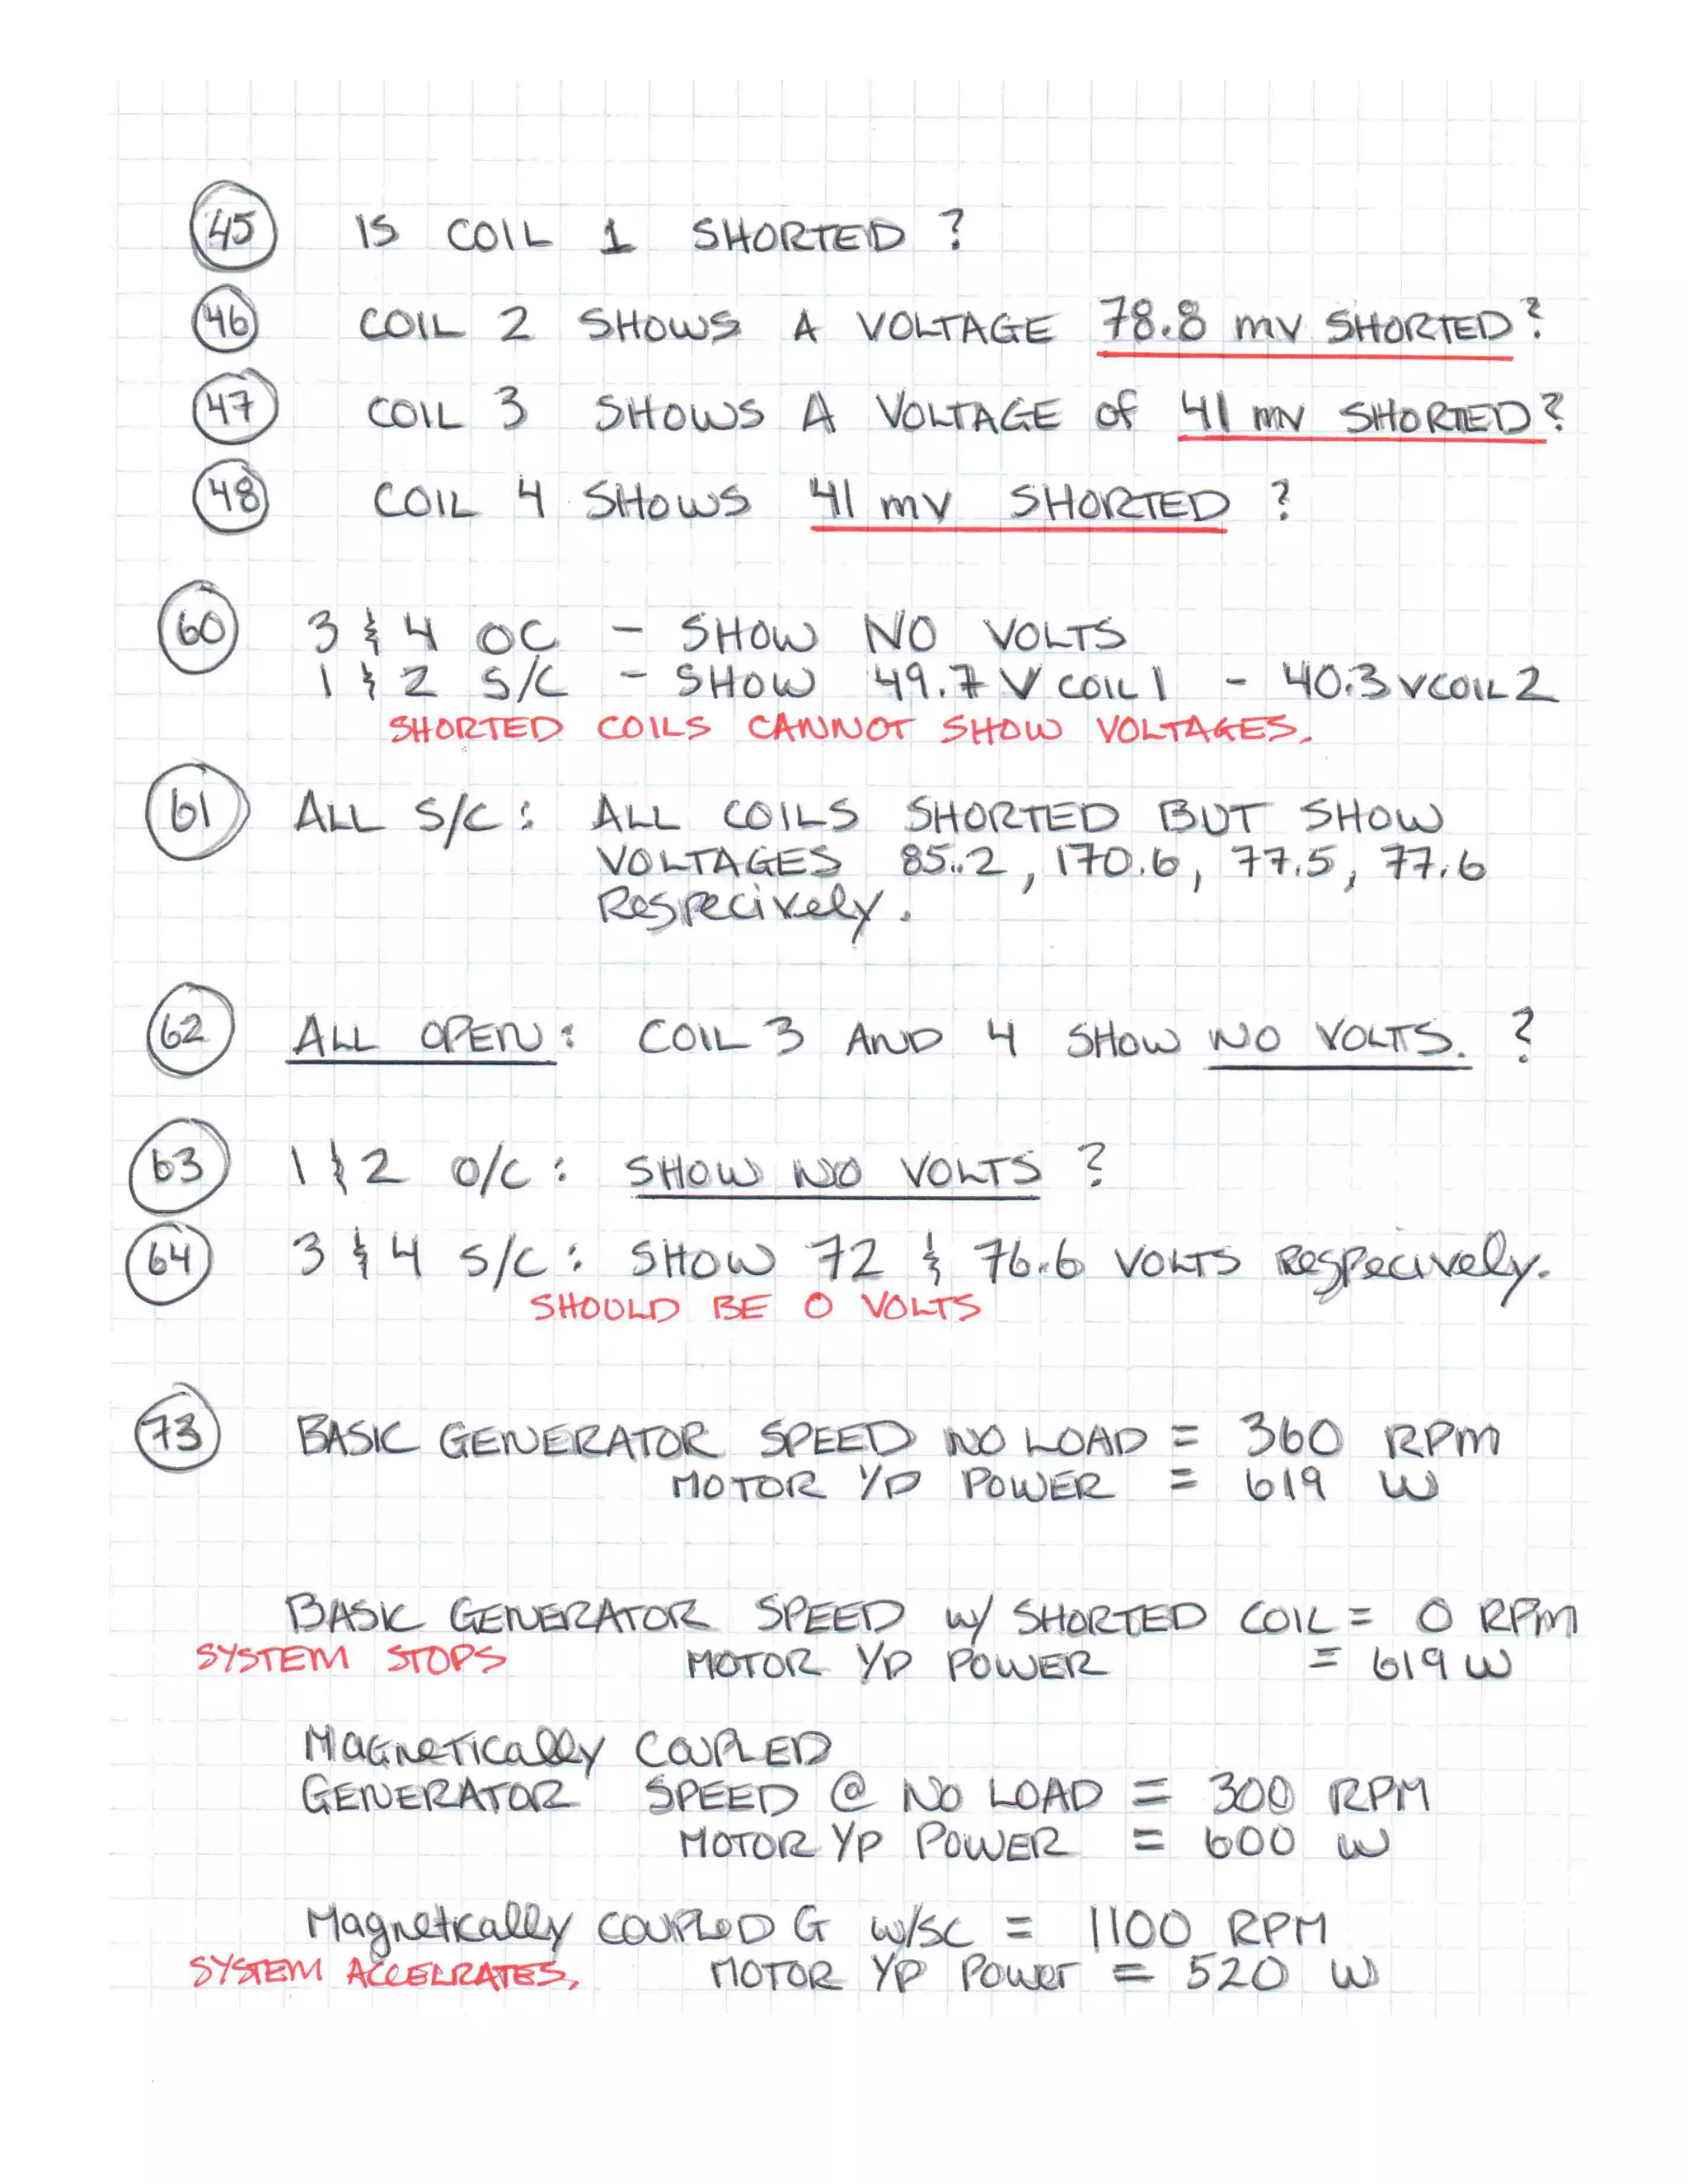 45 IS COIL 1 SHORTED ?
46 COIL 2 SHOWS A VOLTAGE 78.8 mV SHORTED?
47 COIL 3 SHOWS A VOLTAGE of 41 mV SHORTED?
48 COIL 4 SHOWS 41 mV SHORTED ?
60 3 & 4 OC - SHOW NO VOLTS
1 & 2 S/C - SHOW 49.7 V COIL 1 - 40.3 V COIL 2
SHORTED COILS CANNOT SHOW VOLTAGES.
61 ALL S/C : ALL COILS SHORTED BUT SHOW
VOLTAGES 85.2, 170.6, 77.5, 77.6
Respecively.
62 ALL OPEN : COIL 3 AND 4 SHOW NO VOLTS. ?
63 1 & 2 O/C : SHOW NO VOLTS ?
64 3 & 4 S/C : SHOW 72 & 76.6 VOLTS Respecively.
SHOULD BE 0 VOLTS
73 BASIC GENERATOR SPEED NO LOAD = 360 RPM
MOTOR I/P POWER = 619 W
BASIC GENERATOR SPEED w/ SHORTED COIL = 0 RPM
SYSTEM STOPS MOTOR I/P POWER = 619 W
MAGNETICALLY COUPLED
GENERATOR SPEED @ NO LOAD = 300 RPM
MOTOR I/P POWER = 600 W
Magnetically COUPLED G w/SC = 1100 RPM
SYSTEM ACCELRATES, MOTOR I/P Power = 520 W